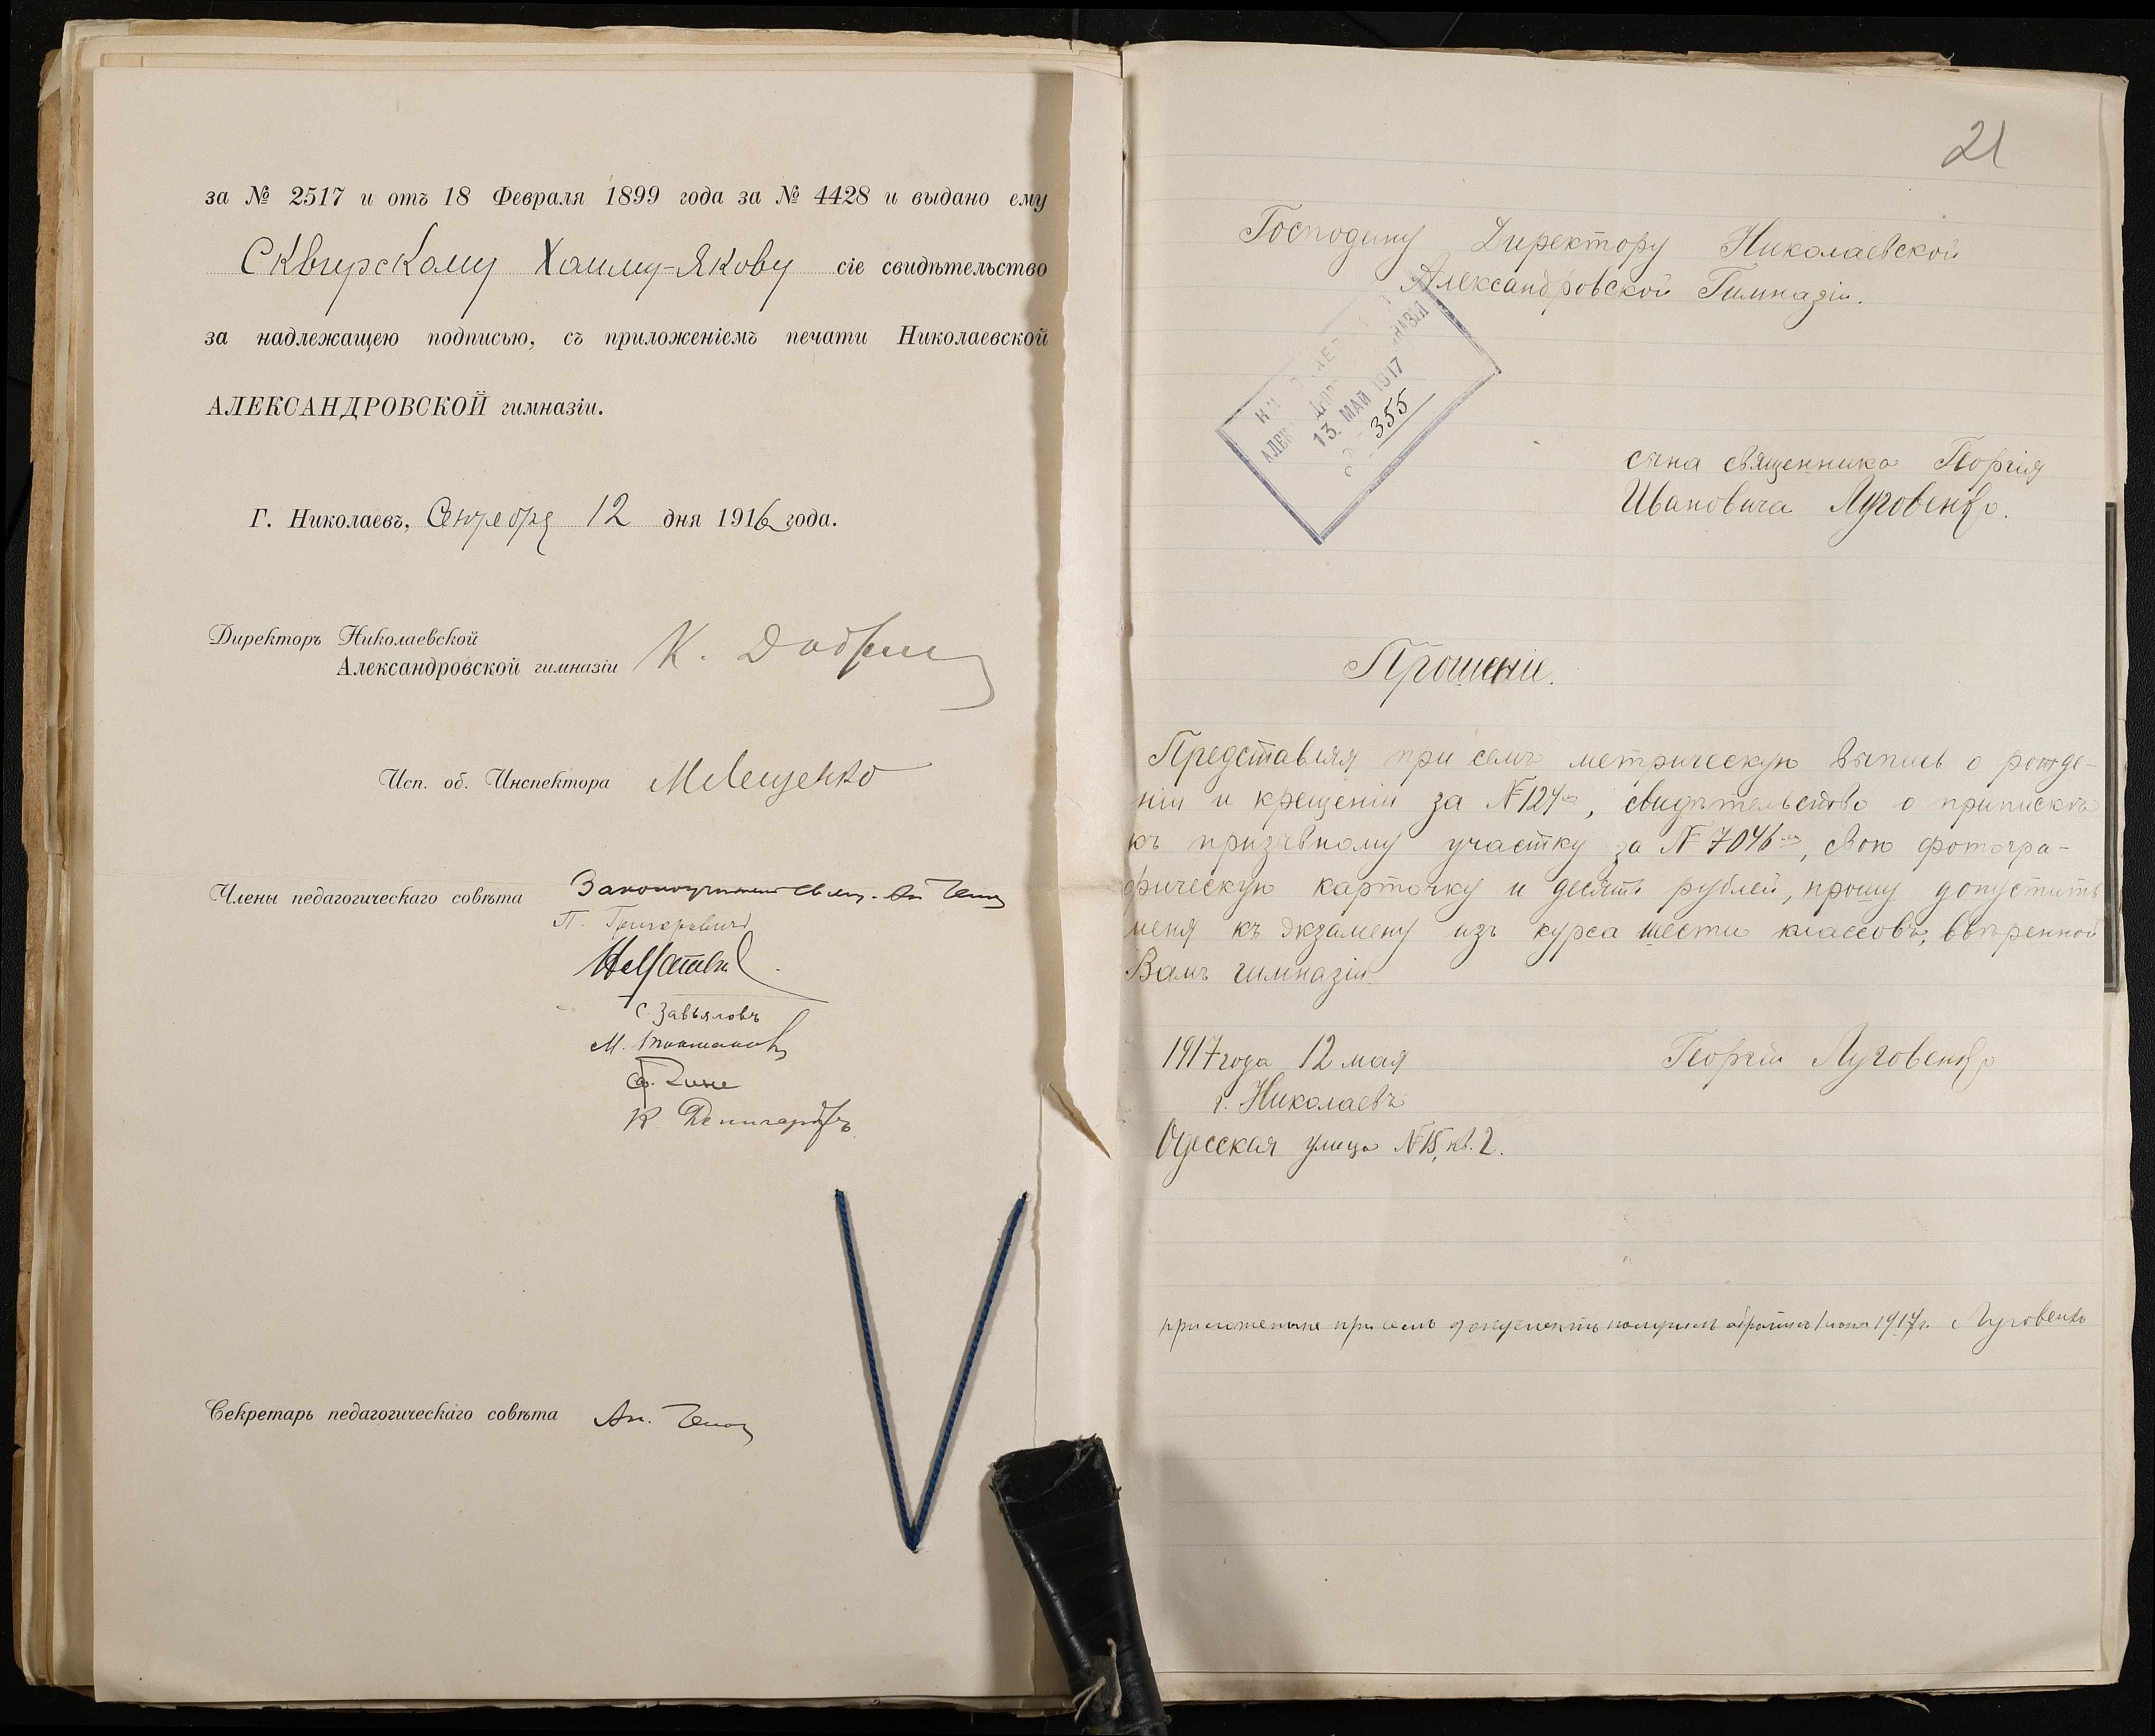 за № 2517 и отъ 18 Февраля 1899 года за № 4428 и выдано ему
Сквирскому Хаиму-Якову сіе свидѣтельство
за надлежащею подписью, съ приложеніемъ печати Николаевской
АЛЕКСАНДРОВСКОЙ гимназіи.
Г. Николаевъ, Сентября 12 дня 1916 года.
Директоръ Николаевской
Александровской гимназіи К.
Исп. об. Инспектора МЛещенко
Члены педагогическаго совѣта Законоучитель свящ.
П. Григоровичъ
С. Завьяловъ
М.
К.
Секретарь педагогическаго совѣта Ан.
21
Господину Директору Николаевской
Александровской Гимназіи.
13. МАЙ 1917
355
сына священника Георгія
Ивановича Луговенко.
Прошеніе.
Представляя при семъ метрическую выпись о рожде-
ніи и крещеніи за №124, свидѣтельство о припискѣ
къ призывному участку за №7046, свою фотогра-
фическую карточку и десять рублей, прошу допустить
меня къ экзамену изъ курса шести классовъ, ввѣренной
Вамъ гимназіи.
1917 года 12 мая
Георгій Луговенко
г. Николаевъ
Одесская улица №15, кв. 2.
приложенные при семъ документы получилъ обратно 1 1917г. Луговенко